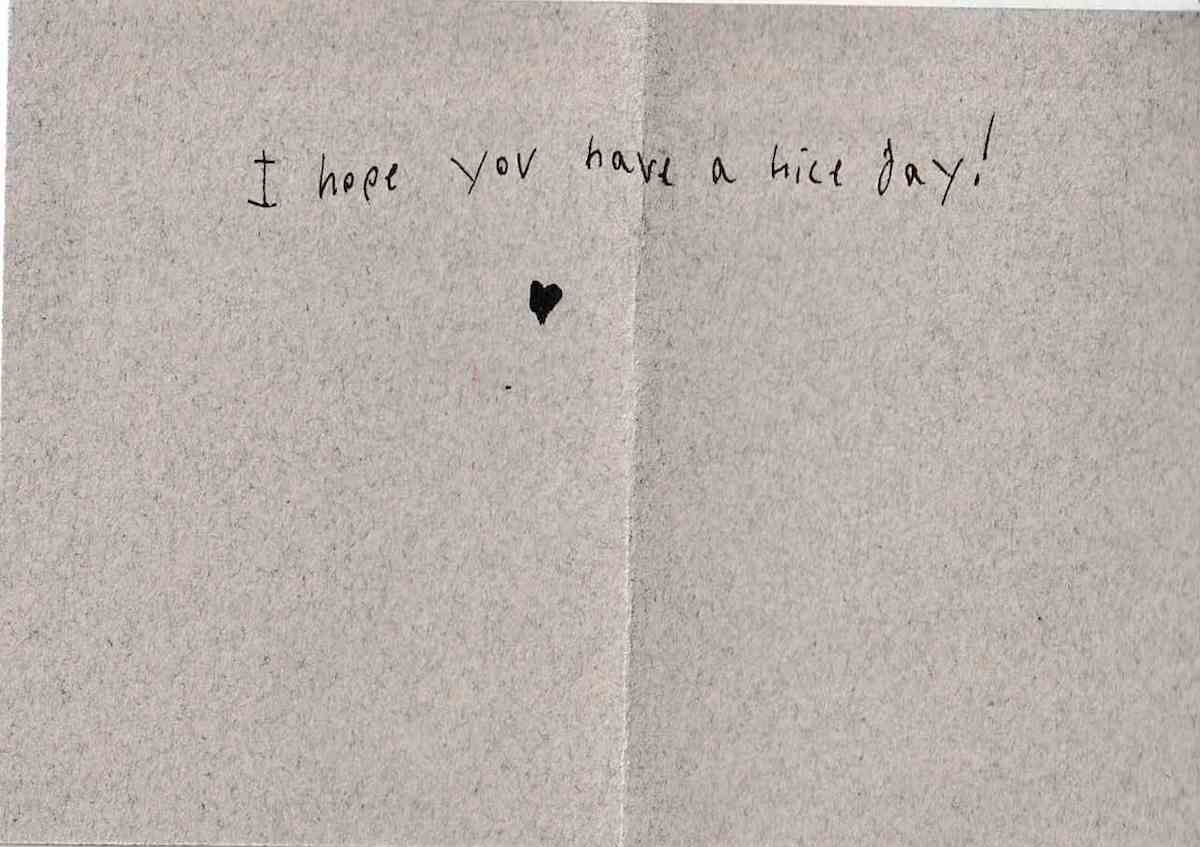 I hope you have a nice day!